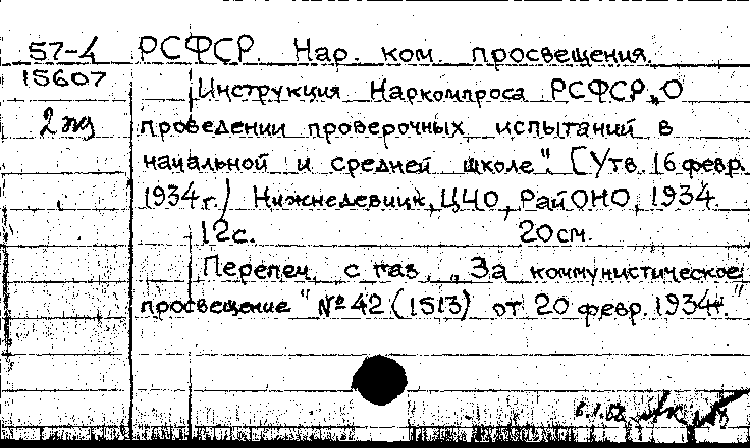 57-4 РСФСР. Нар. ком. просвещения.
15607 Инструкция Наркомпроса РСФСР „О
2 экз проведении проверочных испытаний в
начальной и средней школе". [Утв. 16 февр.
1934г.] Нижнедевицк, ЦЧО, РайОНО, 1934.
12с. 20см.
Перепеч. с газ. „За коммунистическое
просвещение" №42 (1513) от 20 февр. 1934г."